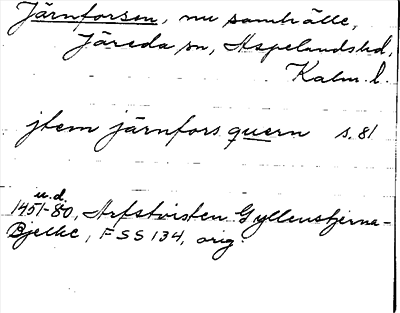 Järnforsen, nu samhälle,
Järeda sn, Aspelands hd,
Kalm. l.
jtem järnfors quern s. 81
u.d.
1451-80, Arfstvisten Gyllenstjerna-
Bjelke, FSS 134, orig.